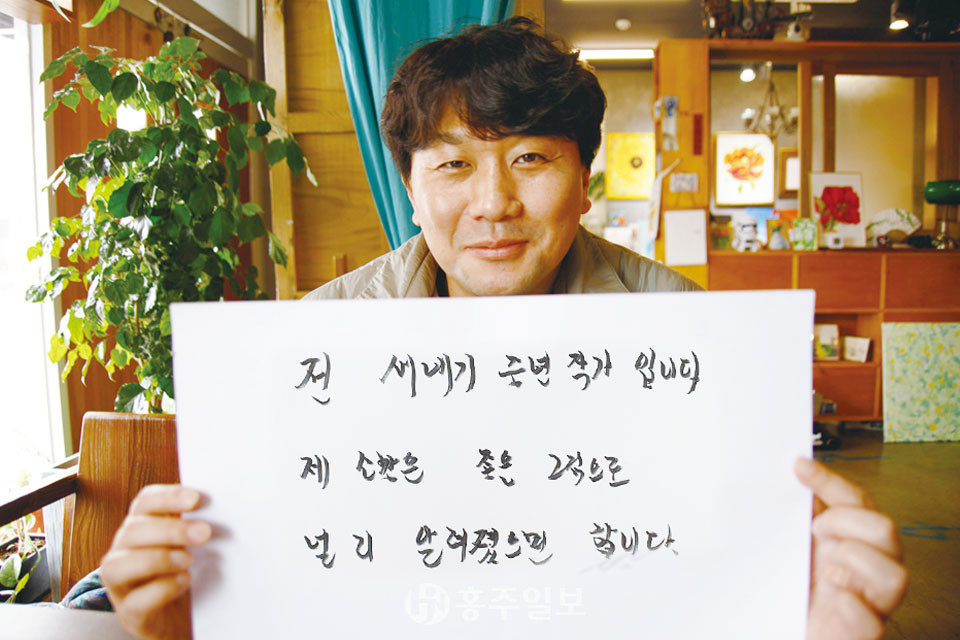 전 새내기 중년 작가 입니다
제 소망은 좋은 그림으로
널리 알려졌으면 합니다.
홍주일보